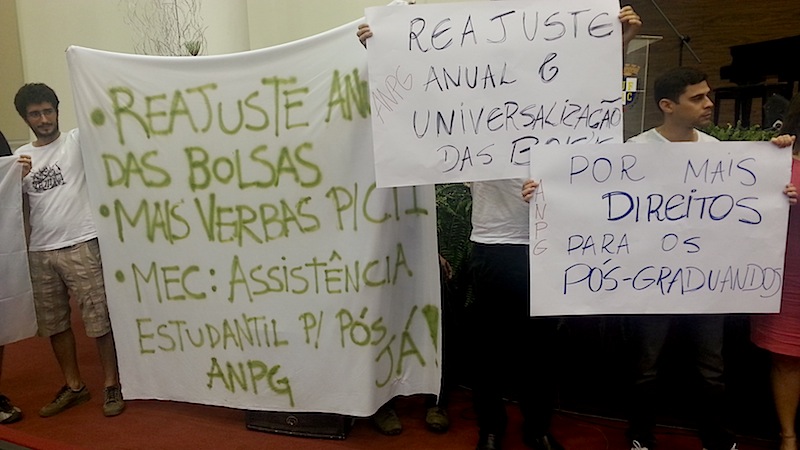 • REAJUSTE
DAS BOLSAS
• MAIS VERBAS P/CTI
• MEC: ASSISTÊNCIA
ESTUDANTIL P/ PÓS
JÁ!
ANPG
REAJUSTE
ANUAL E
UNIVERSALIZAÇÃO
DAS
ANPG
POR MAIS
DIREITOS
PARA OS
PÓS-GRADUANDOS
ANPG